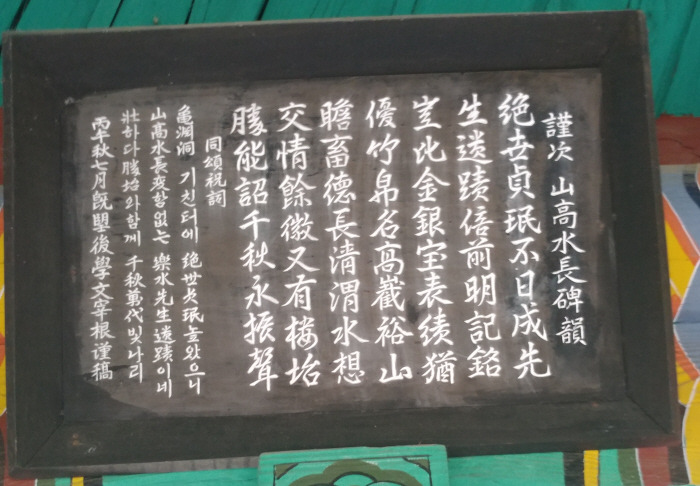 謹次 山高水長碑韻
絶世貞珉不日成先
生遺蹟倍前明記銘
豈比金銀宝表績猶
優竹帛名高截裕山
瞻畜德長清渭水想
交情餘徽又有楼坮
勝能詔千秋永振聲
同頌祝詞
亀渊洞 기친터에 絶世貞珉높았으니
山高水長変함없는 樂水先生遺蹟이네
壯하다 勝坮와함께 千秋萬代빛나리
丙午秋七月旣望後學文宰根謹稿